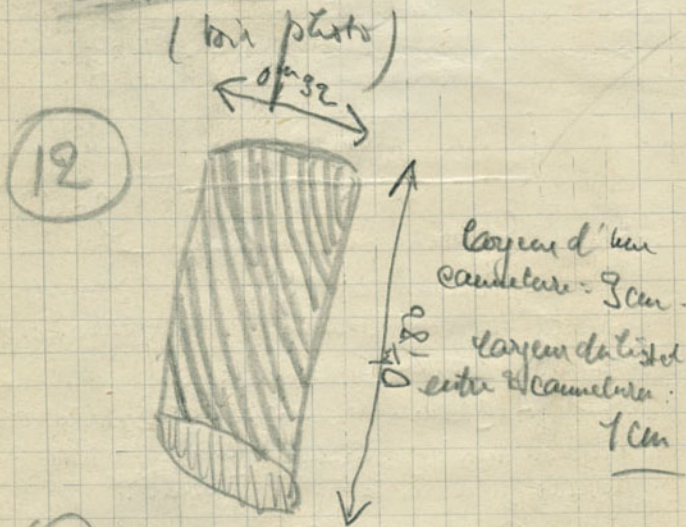 (voir photo)
0m32
12
0m81
largeur d'une
cannelure : 3 cm.
largeur du listel
entre 2 cannelures :
1 cm